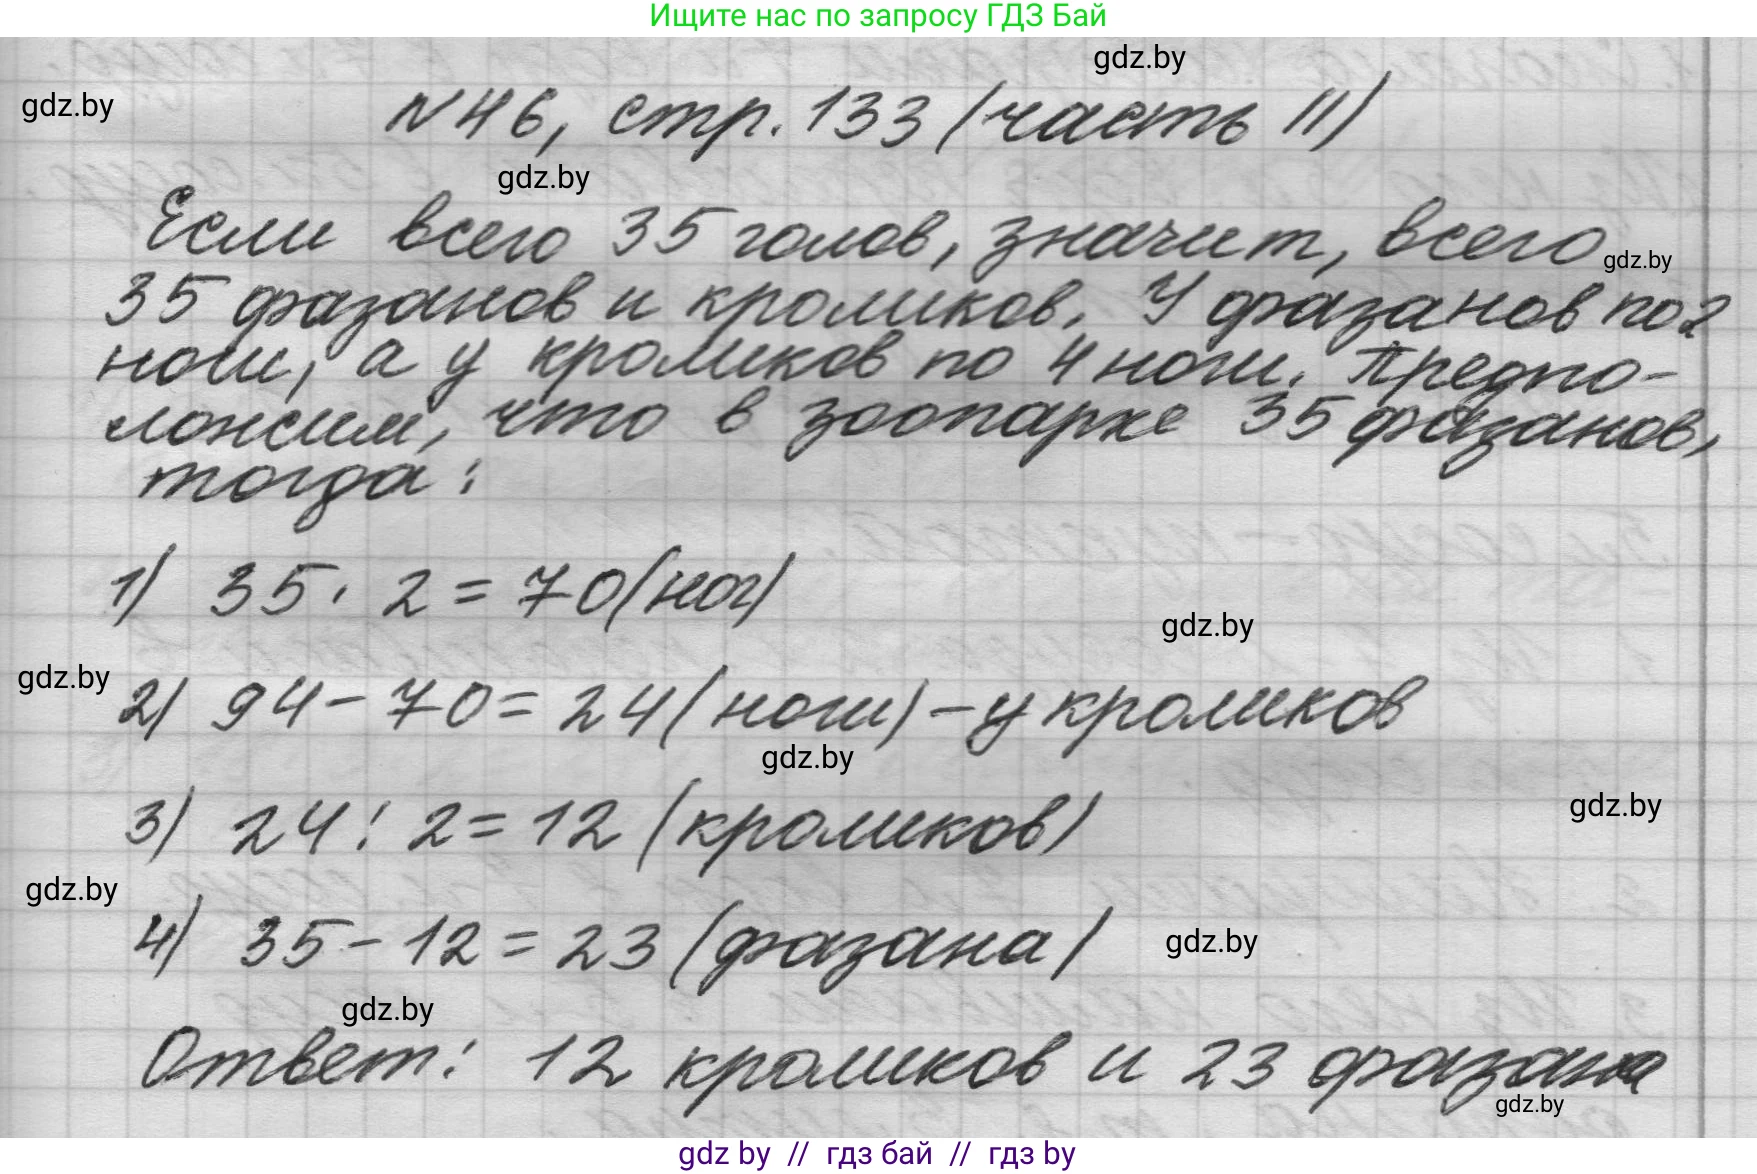 Ищите нас по запросу ГДЗ Бай
gdz.by
gdz.by
N46, стр. 133 (часть II)
gdz.by
Если всего 35 голов, значит, всего
gdz.by
35 фазанов и кроликов. У фазанов по 2
ноги, а у кроликов по 4 ноги. Предпо-
ложим, что в зоопарке 35 фазанов,
тогда:
1) 35 · 2 = 70 (ног)
gdz.by
gdz.by
2) 94 - 70 = 24 (ноги) - у кроликов
gdz.by
3) 24 : 2 = 12 (кроликов)
gdz.by
gdz.by
4) 35 - 12 = 23 (фазана)
gdz.by
gdz.by
Ответ: 12 кроликов и 23 фазана
gdz.by
gdz by // гдз бай // гдз by